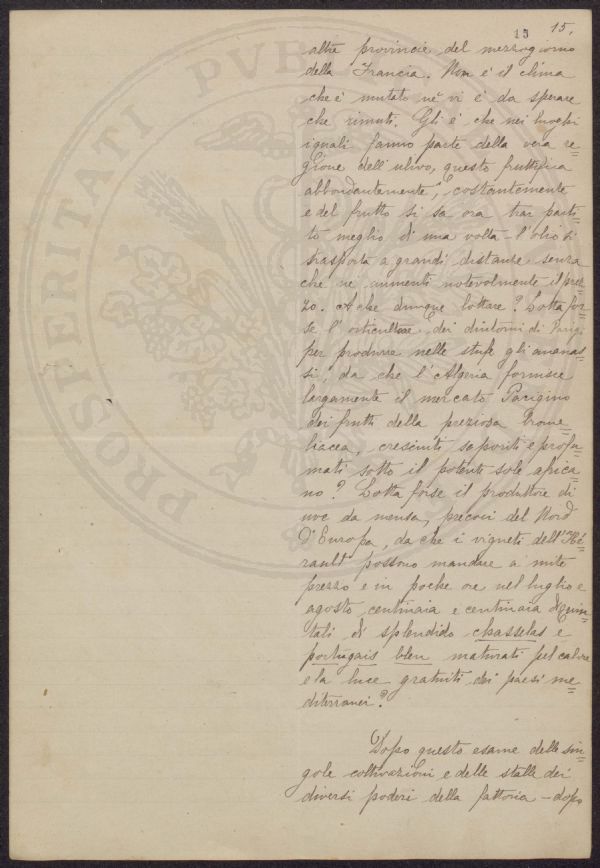 13 15.
altre provincie del mezzogiorno
della Francia. Non è il clima
che è mutato nè vi è da sperare
che rimuti. Gli è che nei luoghi
iguali fanno parte della vera re=
gione dell'ulivo, questo fruttifica
abbondantemente, costantemente
e del frutto si sa ora trar parti=
to meglio di una volta - l'olio si
trasporta a grandi distanze, senza
che ne aumenti notevolmente il prez=
zo. A che dunque lottare? Lotta for=
se l'orticultore dei dintorni di Parigi
per produrre nelle stufe gli ananas=
si, da che l'Algeria fornisce
largamente il mercato Parigino
dei frutti della preziosa Brome=
liacea, cresciuti saporiti e profu=
mati sotto il potente sole africa=
no? Lotta forse il produttore di
uve da mensa, precoci del Nord
d'Europa, da che i vigneti dell'Hé=
rault possono mandare a mite
prezzo e in poche ore nel luglio e
agosto centinaia e centinaia di quin=
tali di splendido chasselas e
portugais bleu maturati pel calore
e la luce gratuiti dei paesi me=
diterranei?
Dopo questo esame delle sin=
gole coltivazioni e delle stalle dei
diversi poderi della fattoria - dopo
PROSPERITATI PVBLI